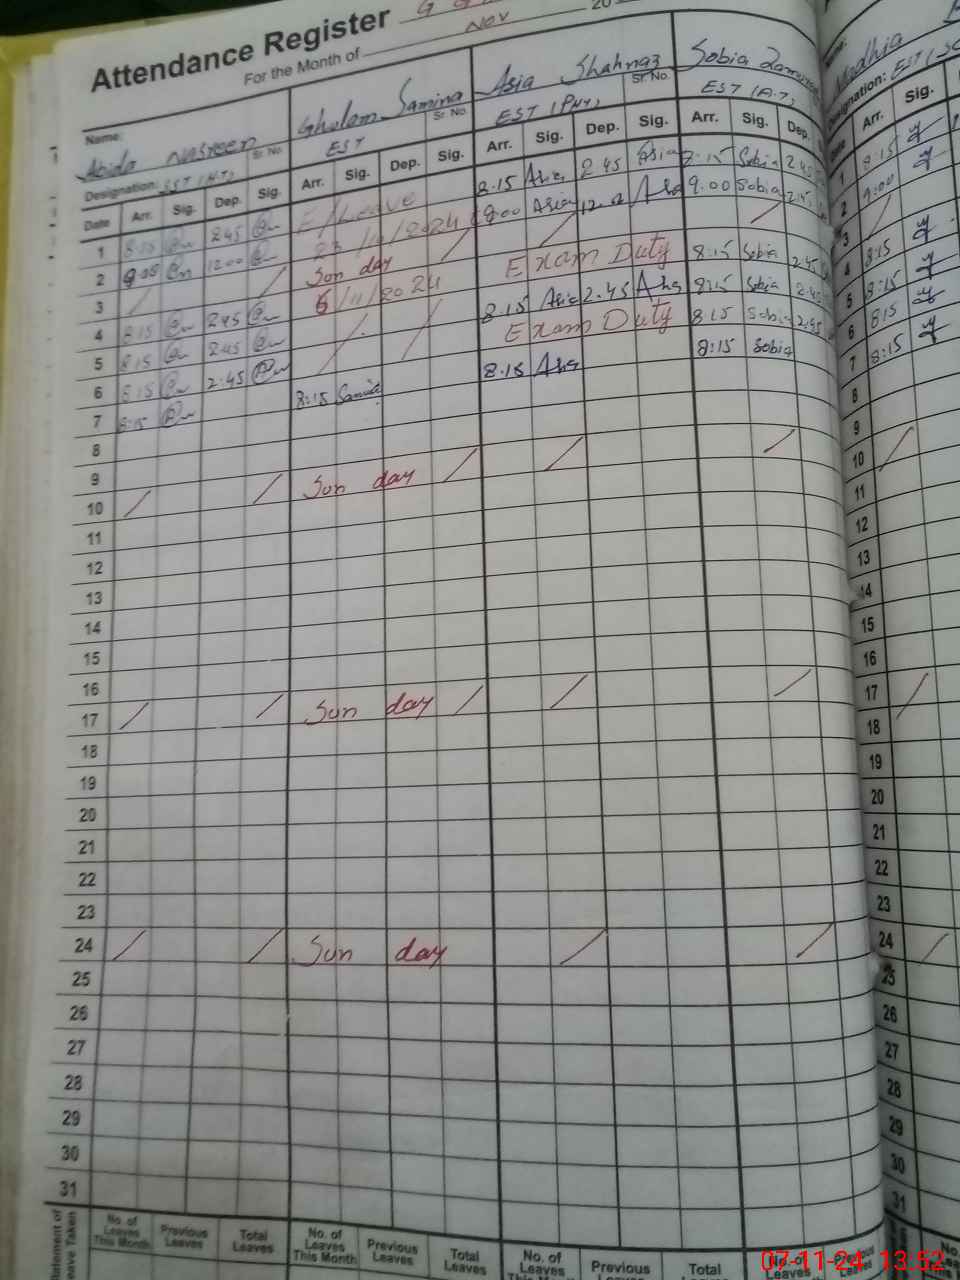 Attendance Register G G
For the Month of Nov 20
Name: Abida Nasreen Sr. No. Ghulam Samina Sr. No. Asia Shahnaz Sr. No. Sobia Madhia
Designation: SST (H.T) EST EST (PHY) EST (A.T) Designation: EST (SC
Date Arr. Sig. Dep. Sig. Arr. Sig. Dep. Sig. Arr. Sig. Dep. Sig. Arr. Sig. Dep. Date Arr. Sig.
1 8:15 2:45 E/Leave 8.15 Asia 2 45 Asia 8:15 Sobia 2.45 1 8:15
2 9:00 12:00 23/10/2024 9:00 Asia 9.00 Sobia 2 9:00
3 / / Sun day / / / 3 /
4 8:15 2:45 6/11/2024 Exam Duty 8:15 Sobia 2.45 4 8:15
5 8:15 2:45 / / 8.15 Asia 2.45 8:15 Sobia 2.45 5 8:15
6 8:15 2:45 Exam Duty 8:15 Sobia 2.45 6 8:15
7 8:15 8:15 Samina 8.15 8:15 Sobia 7 8:15
8 8
9 9
10 / / Sun day / / / 10 /
11 11
12 12
13 13
14 14
15 15
16 16
17 / / Sun day / / / 17 /
18 18
19 19
20 20
21 21
22 22
23 23
24 / / Sun day / / 24 /
25 25
26 26
27 27
28 28
29 29
30 30
31 31
No. of Leaves This Month Previous Leaves Total Leaves No. of Leaves This Month Previous Leaves Total Leaves No. of Leaves This Month Previous Leaves Total Leaves No. of Leaves This Month Previous Leaves
07-11-24 13:52